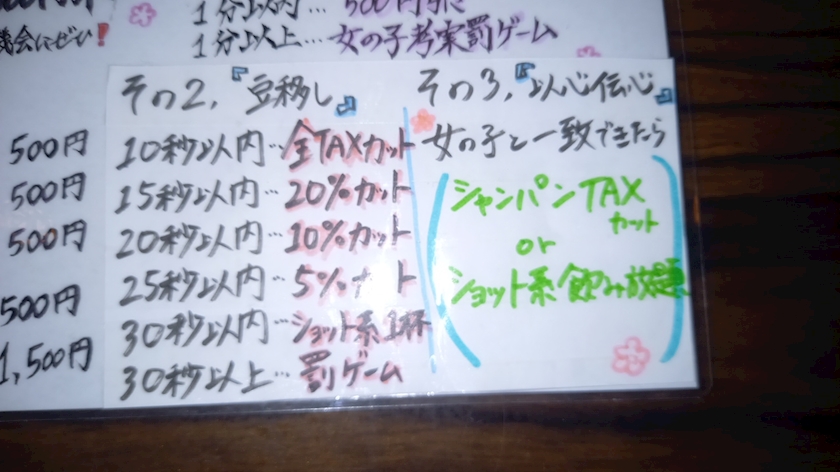 1分以内… 500円引き
機会にぜひ!
1分以上… 女の子考案罰ゲーム
500円
500円
500円
500円
1,500円
その2,『豆移し』
10秒以内… 全TAXカット
15秒以内… 20%カット
20秒以内… 10%カット
25秒以内… 5%カット
30秒以内… ショット系1杯
30秒以上… 罰ゲーム
その3,『以心伝心』
女の子と一致できたら
シャンパンTAX
カット
or
ショット系飲み放題